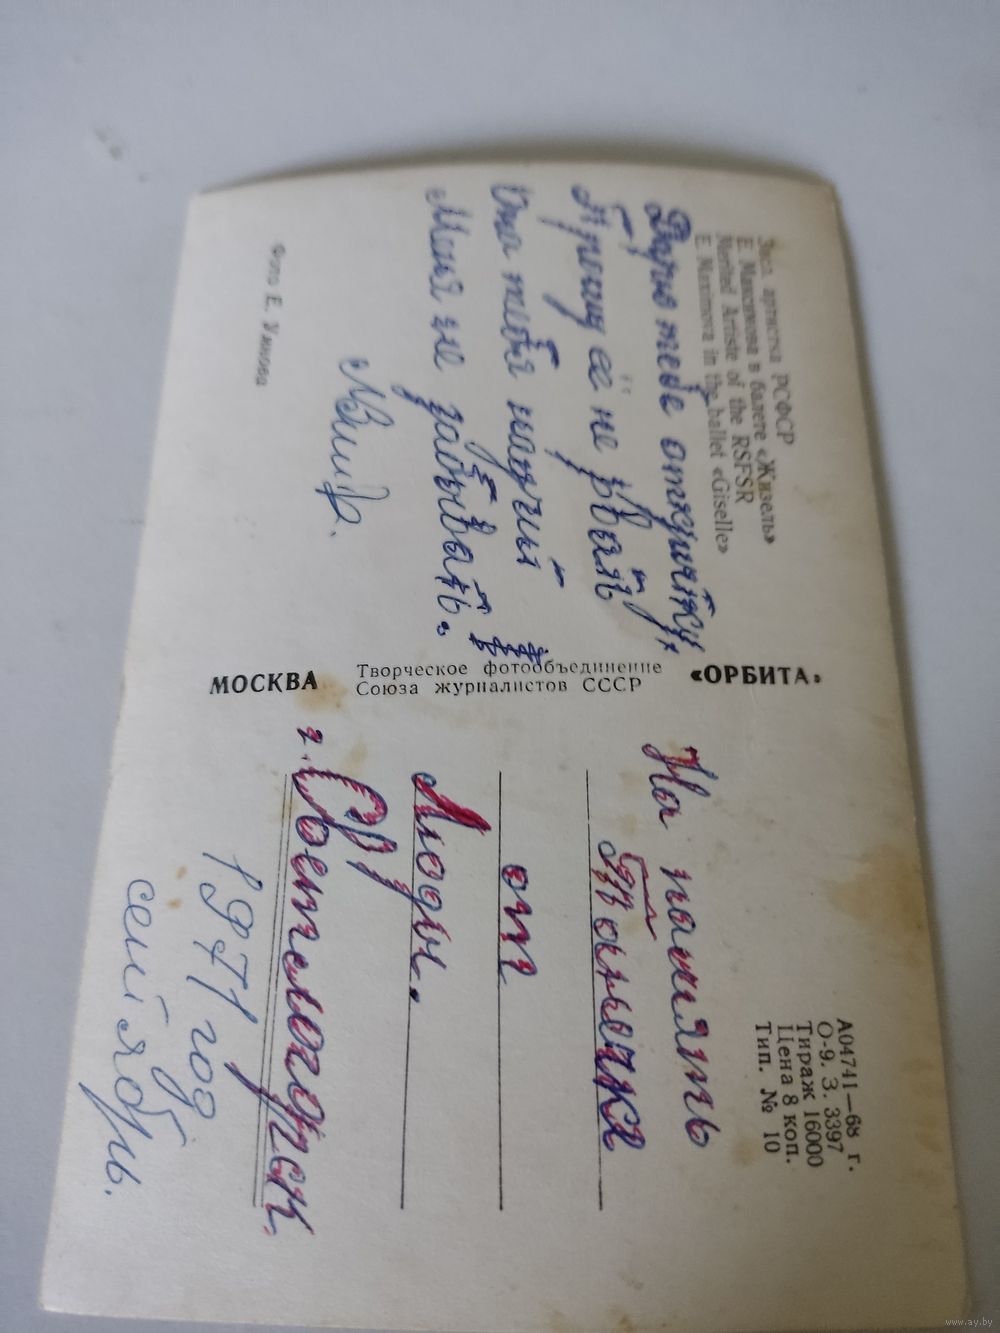 Засл. артистка РСФСР
Е. Максимова в балете «Жизель»
Merited Artiste of the RSFSR
E. Maximova in the ballet «Giselle»
Дарю тебе открытку,
Прошу её не рвать
Она тебя научит
Меня не забывать.
Фото Е. Умнова
МОСКВА
Творческое фотообъединение
Союза журналистов СССР
«ОРБИТА»
А04741—68 г.
О-9. З. 3397
Тираж 16000
Цена 8 коп.
Тип. № 10
На память
от
Люды.
г. Светлогорск.
1971 год
сентябрь.
www.ay.by